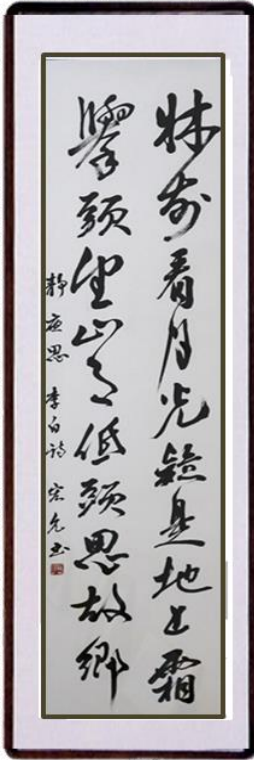 牀前看月光疑是地上霜
舉頭望山月低頭思故鄉
靜夜思 李白詩 宏允書